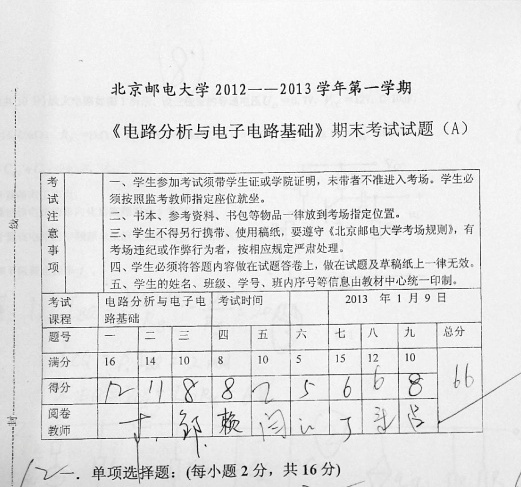 北京邮电大学 2012——2013 学年第一学期
《电路分析与电子电路基础》期末考试试题（A）
考试注意事项
一、学生参加考试须带学生证或学院证明，未带者不准进入考场。学生必
须按照监考教师指定座位就坐。
二、书本、参考资料、书包等物品一律放到考场指定位置。
三、学生不得另行携带、使用稿纸，要遵守《北京邮电大学考场规则》，有
考场违纪或作弊行为者，按相应规定严肃处理。
四、学生必须将答题内容做在试题答卷上，做在试题及草稿纸上一律无效。
五、学生的姓名、班级、学号、班内序号等信息由教材中心统一印制。
考试课程 电路分析与电子电路基础 考试时间 2013 年 1 月 9 日
题号 一 二 三 四 五 六 七 八 九 总分
满分 16 14 10 8 10 5 15 12 10
得分 12 11 8 8 2 5 6 6 8 66
阅卷教师 邹 赖 闫 丁
12
一. 单项选择题：(每小题 2 分，共 16 分)